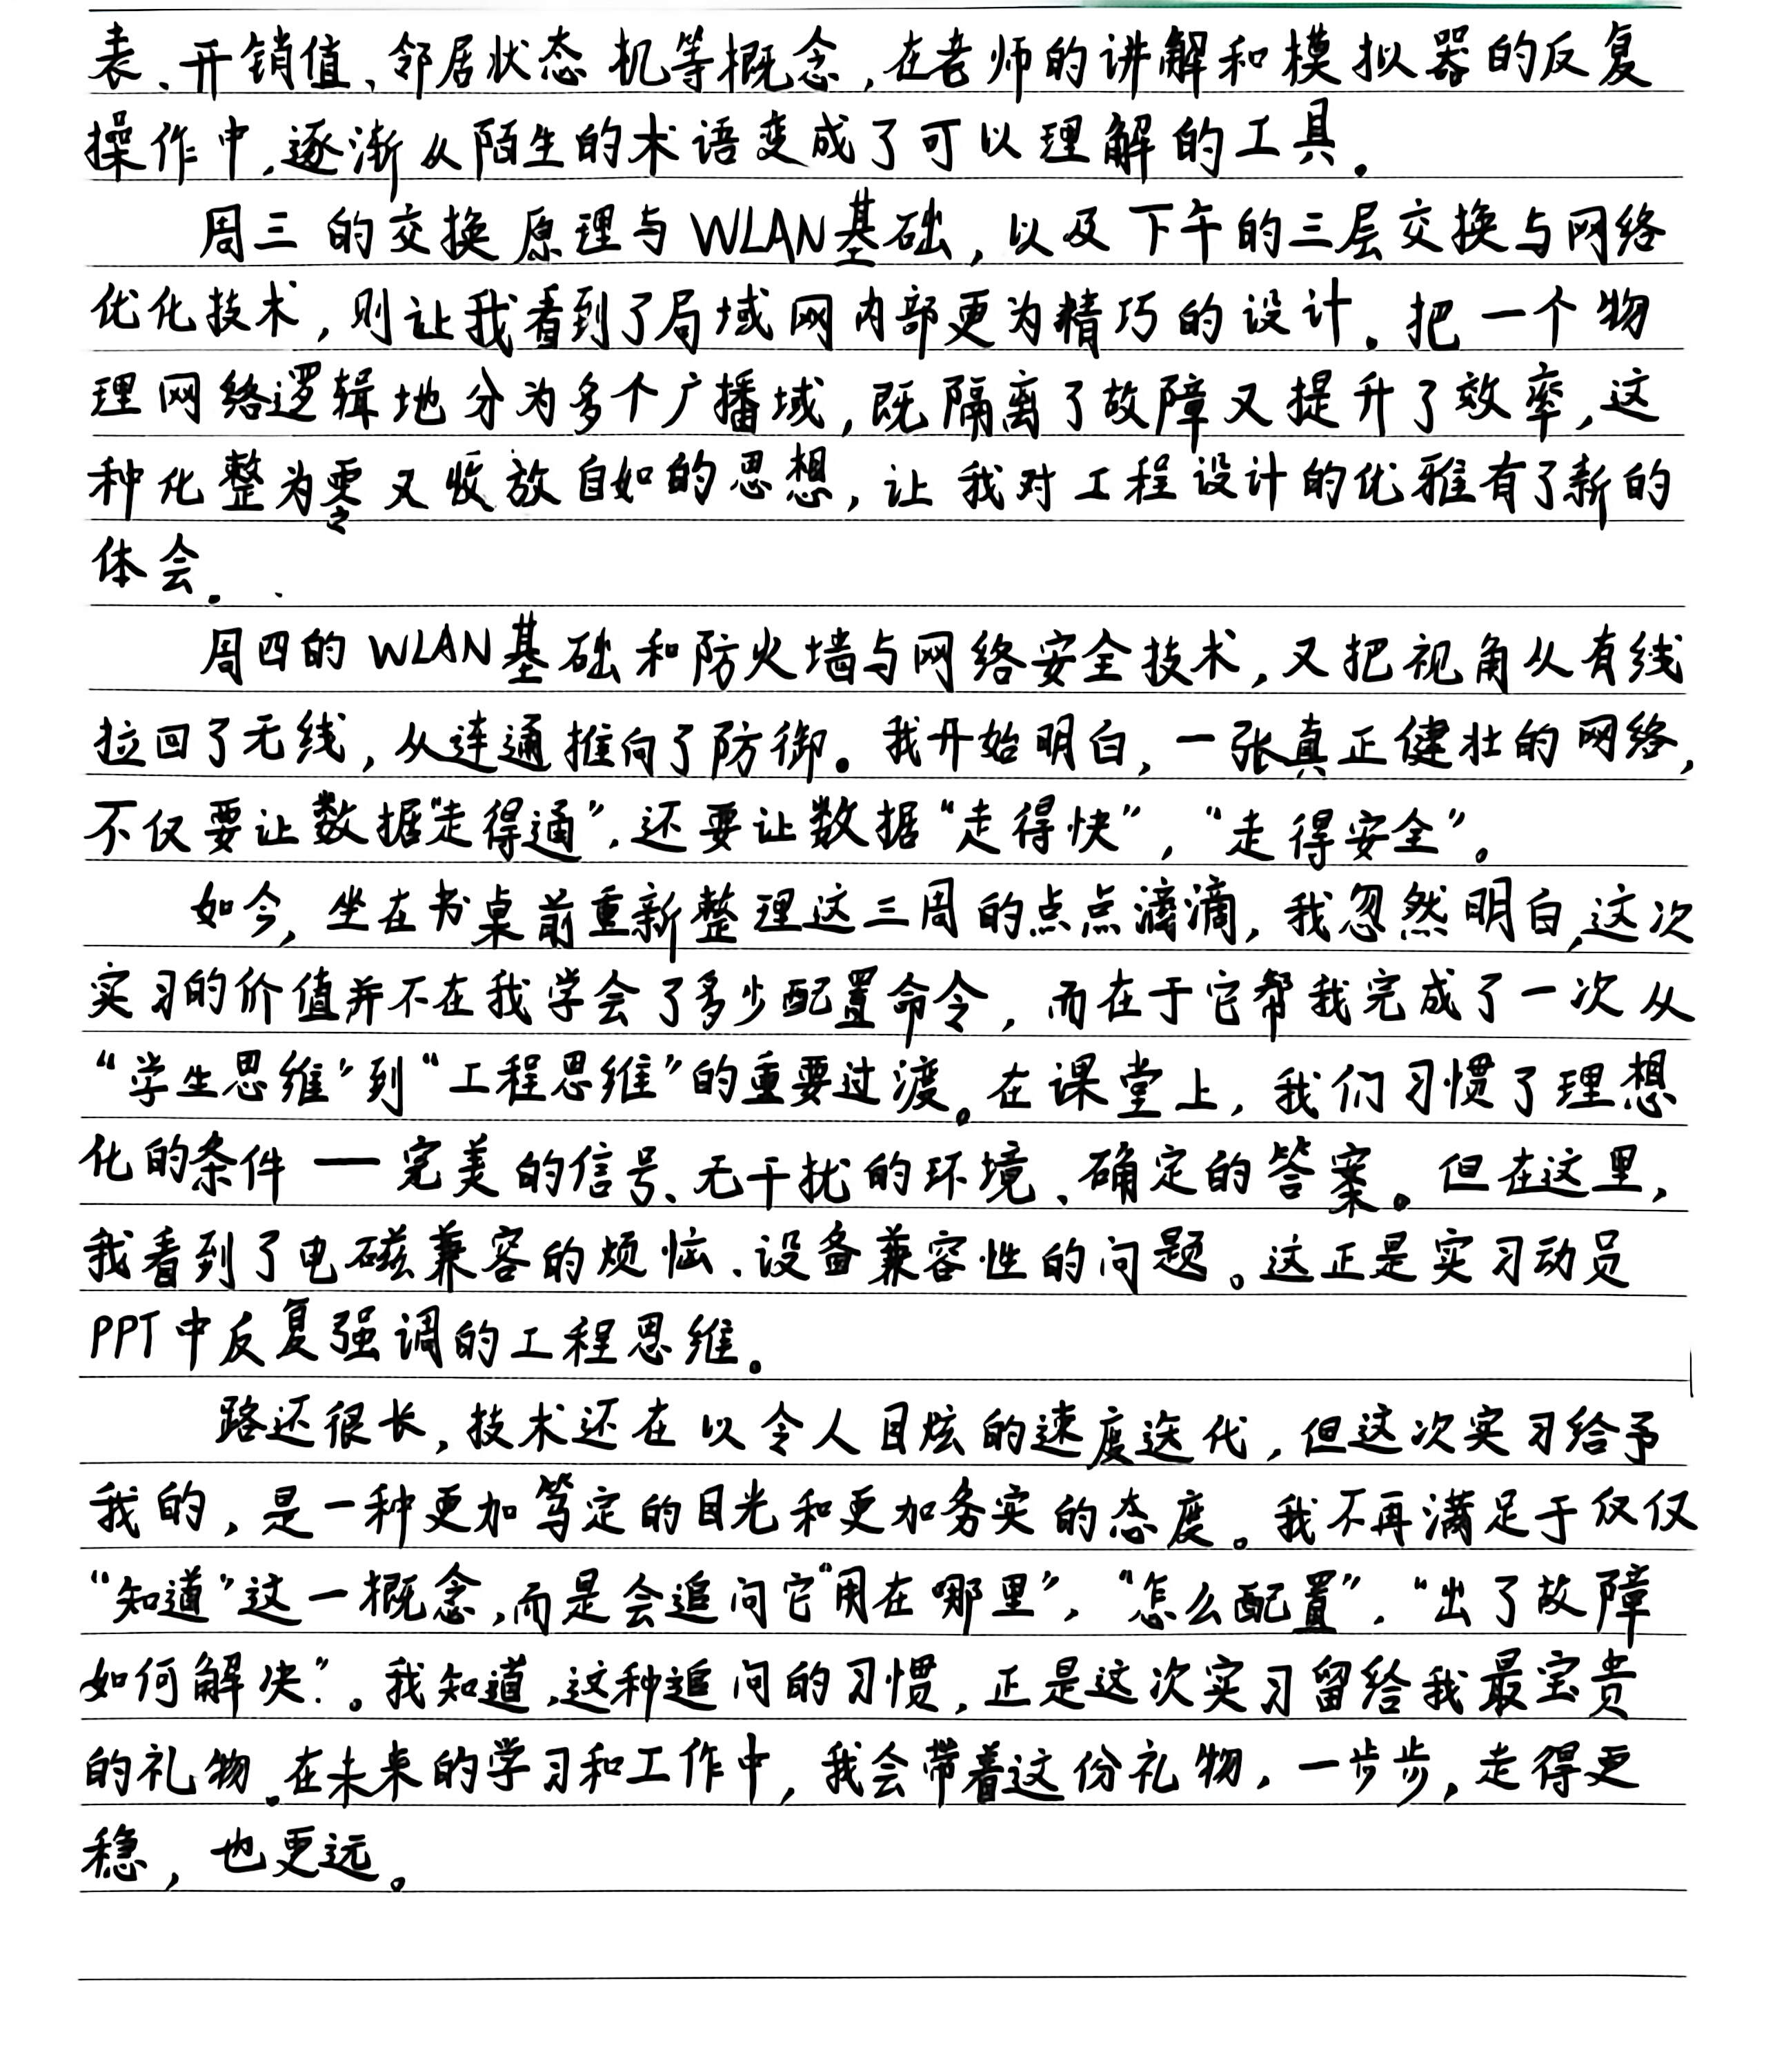 表、开销值、邻居状态机等概念,在老师的讲解和模拟器的反复
操作中,逐渐从陌生的术语变成了可以理解的工具.
周三的交换原理与WLAN基础,以及下午的三层交换与网络
优化技术,则让我看到了局域网内部更为精巧的设计.把一个物
理网络逻辑地分为多个广播域,既隔离了故障又提升了效率,这
种化整为零又收放自如的思想,让我对工程设计的优雅有了新的
体会.
周四的WLAN基础和防火墙与网络安全技术,又把视角从有线
拉回了无线,从连通推向了防御。我开始明白,一张真正健壮的网络,
不仅要让数据“走得通”,还要让数据“走得快”,“走得安全”。
如今,坐在书桌前重新整理这三周的点点滴滴,我忽然明白,这次
实习的价值并不在我学会了多少配置命令,而在于它帮我完成了一次从
“学生思维”到“工程思维”的重要过渡。在课堂上,我们习惯了理想
化的条件——完美的信号、无干扰的环境、确定的答案。但在这里,
我看到了电磁兼容的烦恼、设备兼容性的问题。这正是实习动员
PPT中反复强调的工程思维。
路还很长,技术还在以令人目炫的速度迭代,但这次实习给予
我的,是一种更加笃定的目光和更加务实的态度。我不再满足于仅仅
“知道”这一概念,而是会追问它“用在哪里”,“怎么配置”,“出了故障
如何解决”。我知道,这种追问的习惯,正是这次实习留给我最宝贵
的礼物.在未来的学习和工作中,我会带着这份礼物,一步步,走得更
稳,也更远。